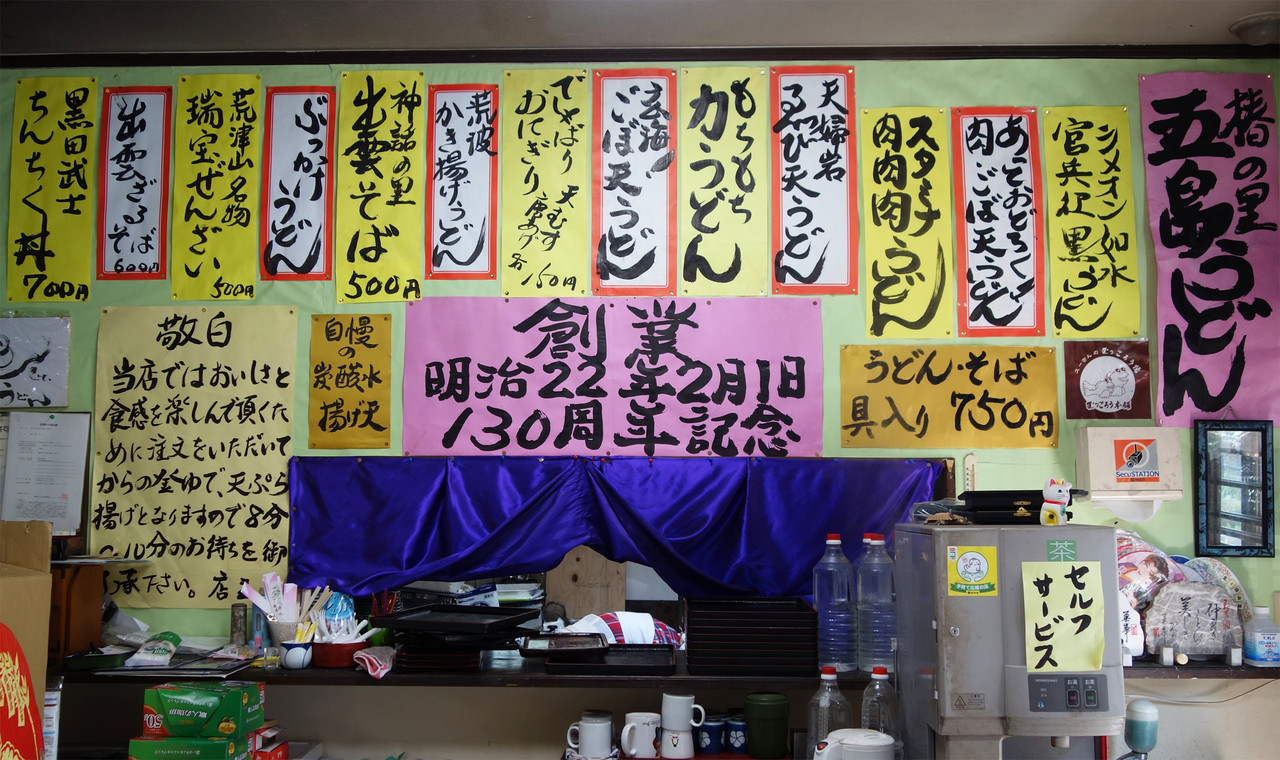 黒田武士
ちんちく丼
700円
出雲ざるそば
600円
荒津山名物
瑞宝ぜんざい
500円
ぶっかけ
うどん
神話の里
出雲そば
500円
荒波
かき揚げうどん
でずっぱり 天むす
おにぎり
各150円
玄海!
ごぼ天うどん
もちもち
力うどん
天婦岩
るつび天うどん
スタミナ
肉肉肉うどん
あっとおどろく
肉ごぼ天うどん
シメオン如水
官兵衛黒うどん
椿の里
五島うどん
敬白
当店ではおいしさと
食感を楽しんで頂くた
めに注文をいただいて
からの釜ゆで、天ぷら
揚げとなりますので8分
〜10分のお待ちを御
了承下さい。店主
自慢
の
炭酸水
揚げ天
創業
明治22年2月1日
130周年記念
うどん・そば
具入り 750円
SecuSTATION
茶
セルフ
サービス